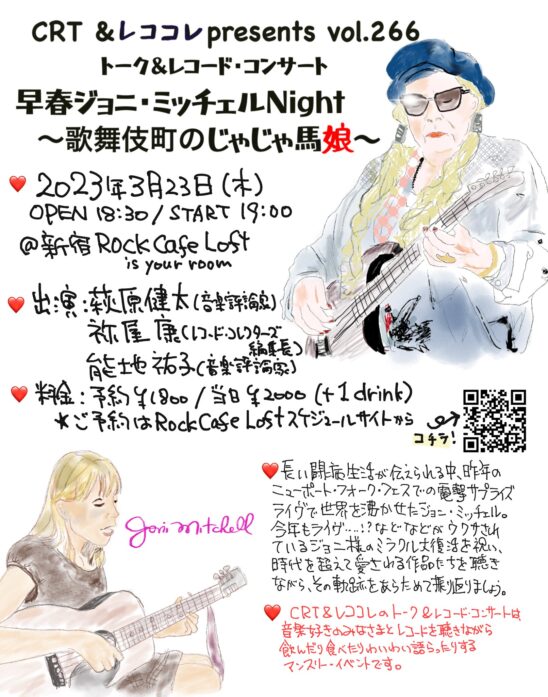 CRT &レココレpresents vol.266
トーク&レコード・コンサート
早春ジョニ・ミッチェルNight
〜歌舞伎町のじゃじゃ馬娘〜
2023年3月23日(木)
OPEN 18:30/START 19:00
@新宿 Rock Cafe Loft
is your room
出演:萩原健太(音楽評論家)
祢屋 康(レコード・コレクターズ
編集長)
能地祐子(音楽評論家)
料金:予約¥1800/当日¥2000(+1drink)
*ご予約はRock Cafe Loftスケジュールサイトから
コチラ!
Joni Mitchell
長い闘病生活が伝えられる中、昨年の
ニューポート・フォーク・フェスでの電撃サプライズ
ライヴで世界を沸かせたジョニ・ミッチェル。
今年もライヴ…!?などなどがウワサされ
ているジョニ様のミラクル大復活を祝い、
時代を超えて愛される作品たちを聴き
ながら、その軌跡をあらためて振り返りましょう。
CRT&レココレのトーク&レコード・コンサートは
音楽好きのみなさまとレコードを聴きながら
飲んだり食べたりわいわい語らったりする
マンスリー・イベントです。